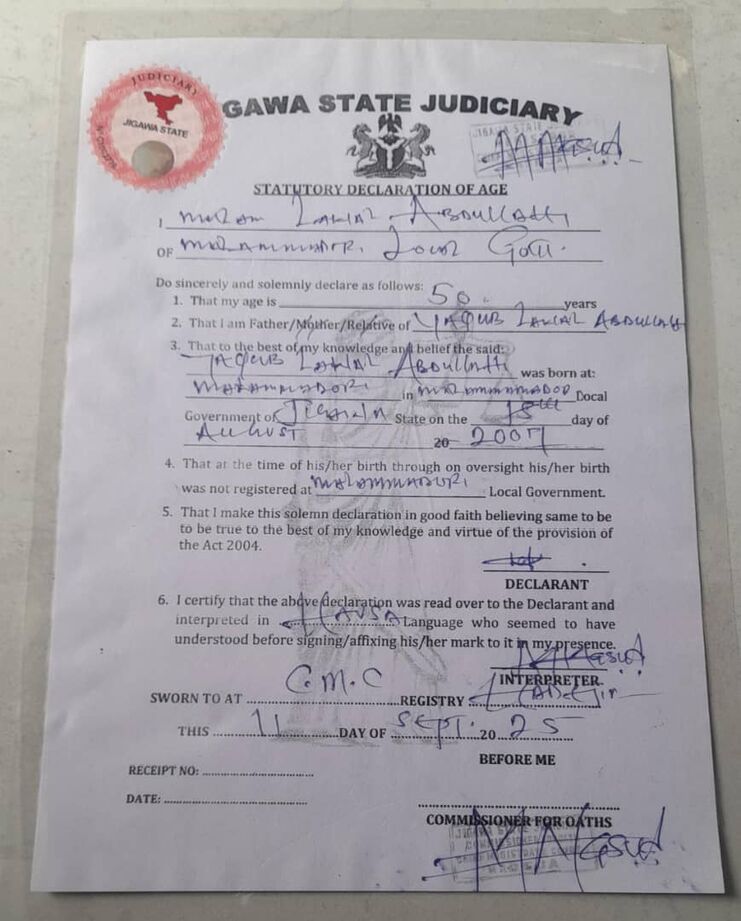 JUDICIARY
JIGAWA STATE
GAWA STATE JUDICIARY
STATUTORY DECLARATION OF AGE
I, Lawal Abdullahi
OF Local Gott.
Do sincerely and solemnly declare as follows:
1. That my age is 50 years
2. That I am Father/Mother/Relative of YAQUB LAWAL ABDULLAHI
3. That to the best of my knowledge and belief the said:
YAQUB LAWAL ABDULLAHI was born at:
MALAMMADORI in MALAMMADORI Local
Government of JIGAWA State on the day of
AUGUST 20 2007
4. That at the time of his/her birth through on oversight his/her birth
was not registered at MALAMMADORI Local Government.
5. That I make this solemn declaration in good faith believing same to be
to be true to the best of my knowledge and virtue of the provision of
the Act 2004.
DECLARANT
6. I certify that the above declaration was read over to the Declarant and
interpreted in HAUSA Language who seemed to have
understood before signing/affixing his/her mark to it in my presence.
INTERPRETER
SWORN TO AT C.M.C REGISTRY
THIS 11 DAY OF SEPT. 20 25
BEFORE ME
RECEIPT NO:
DATE:
COMMISSIONER FOR OATHS